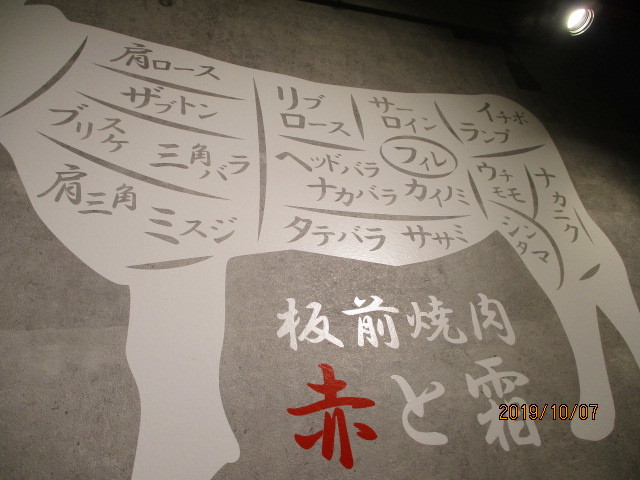 肩ロース
ザブトン
ブリスケ
三角バラ
肩三角
ミスジ
リブ
ロース
サー
ロイン
イチボ
ランプ
ヘッドバラ
フィレ
ナカバラ
カイノミ
ウチ
モモ
ナカニク
シン
タマ
タテバラ
ササミ
板前焼肉
赤と霜
2019/10/07